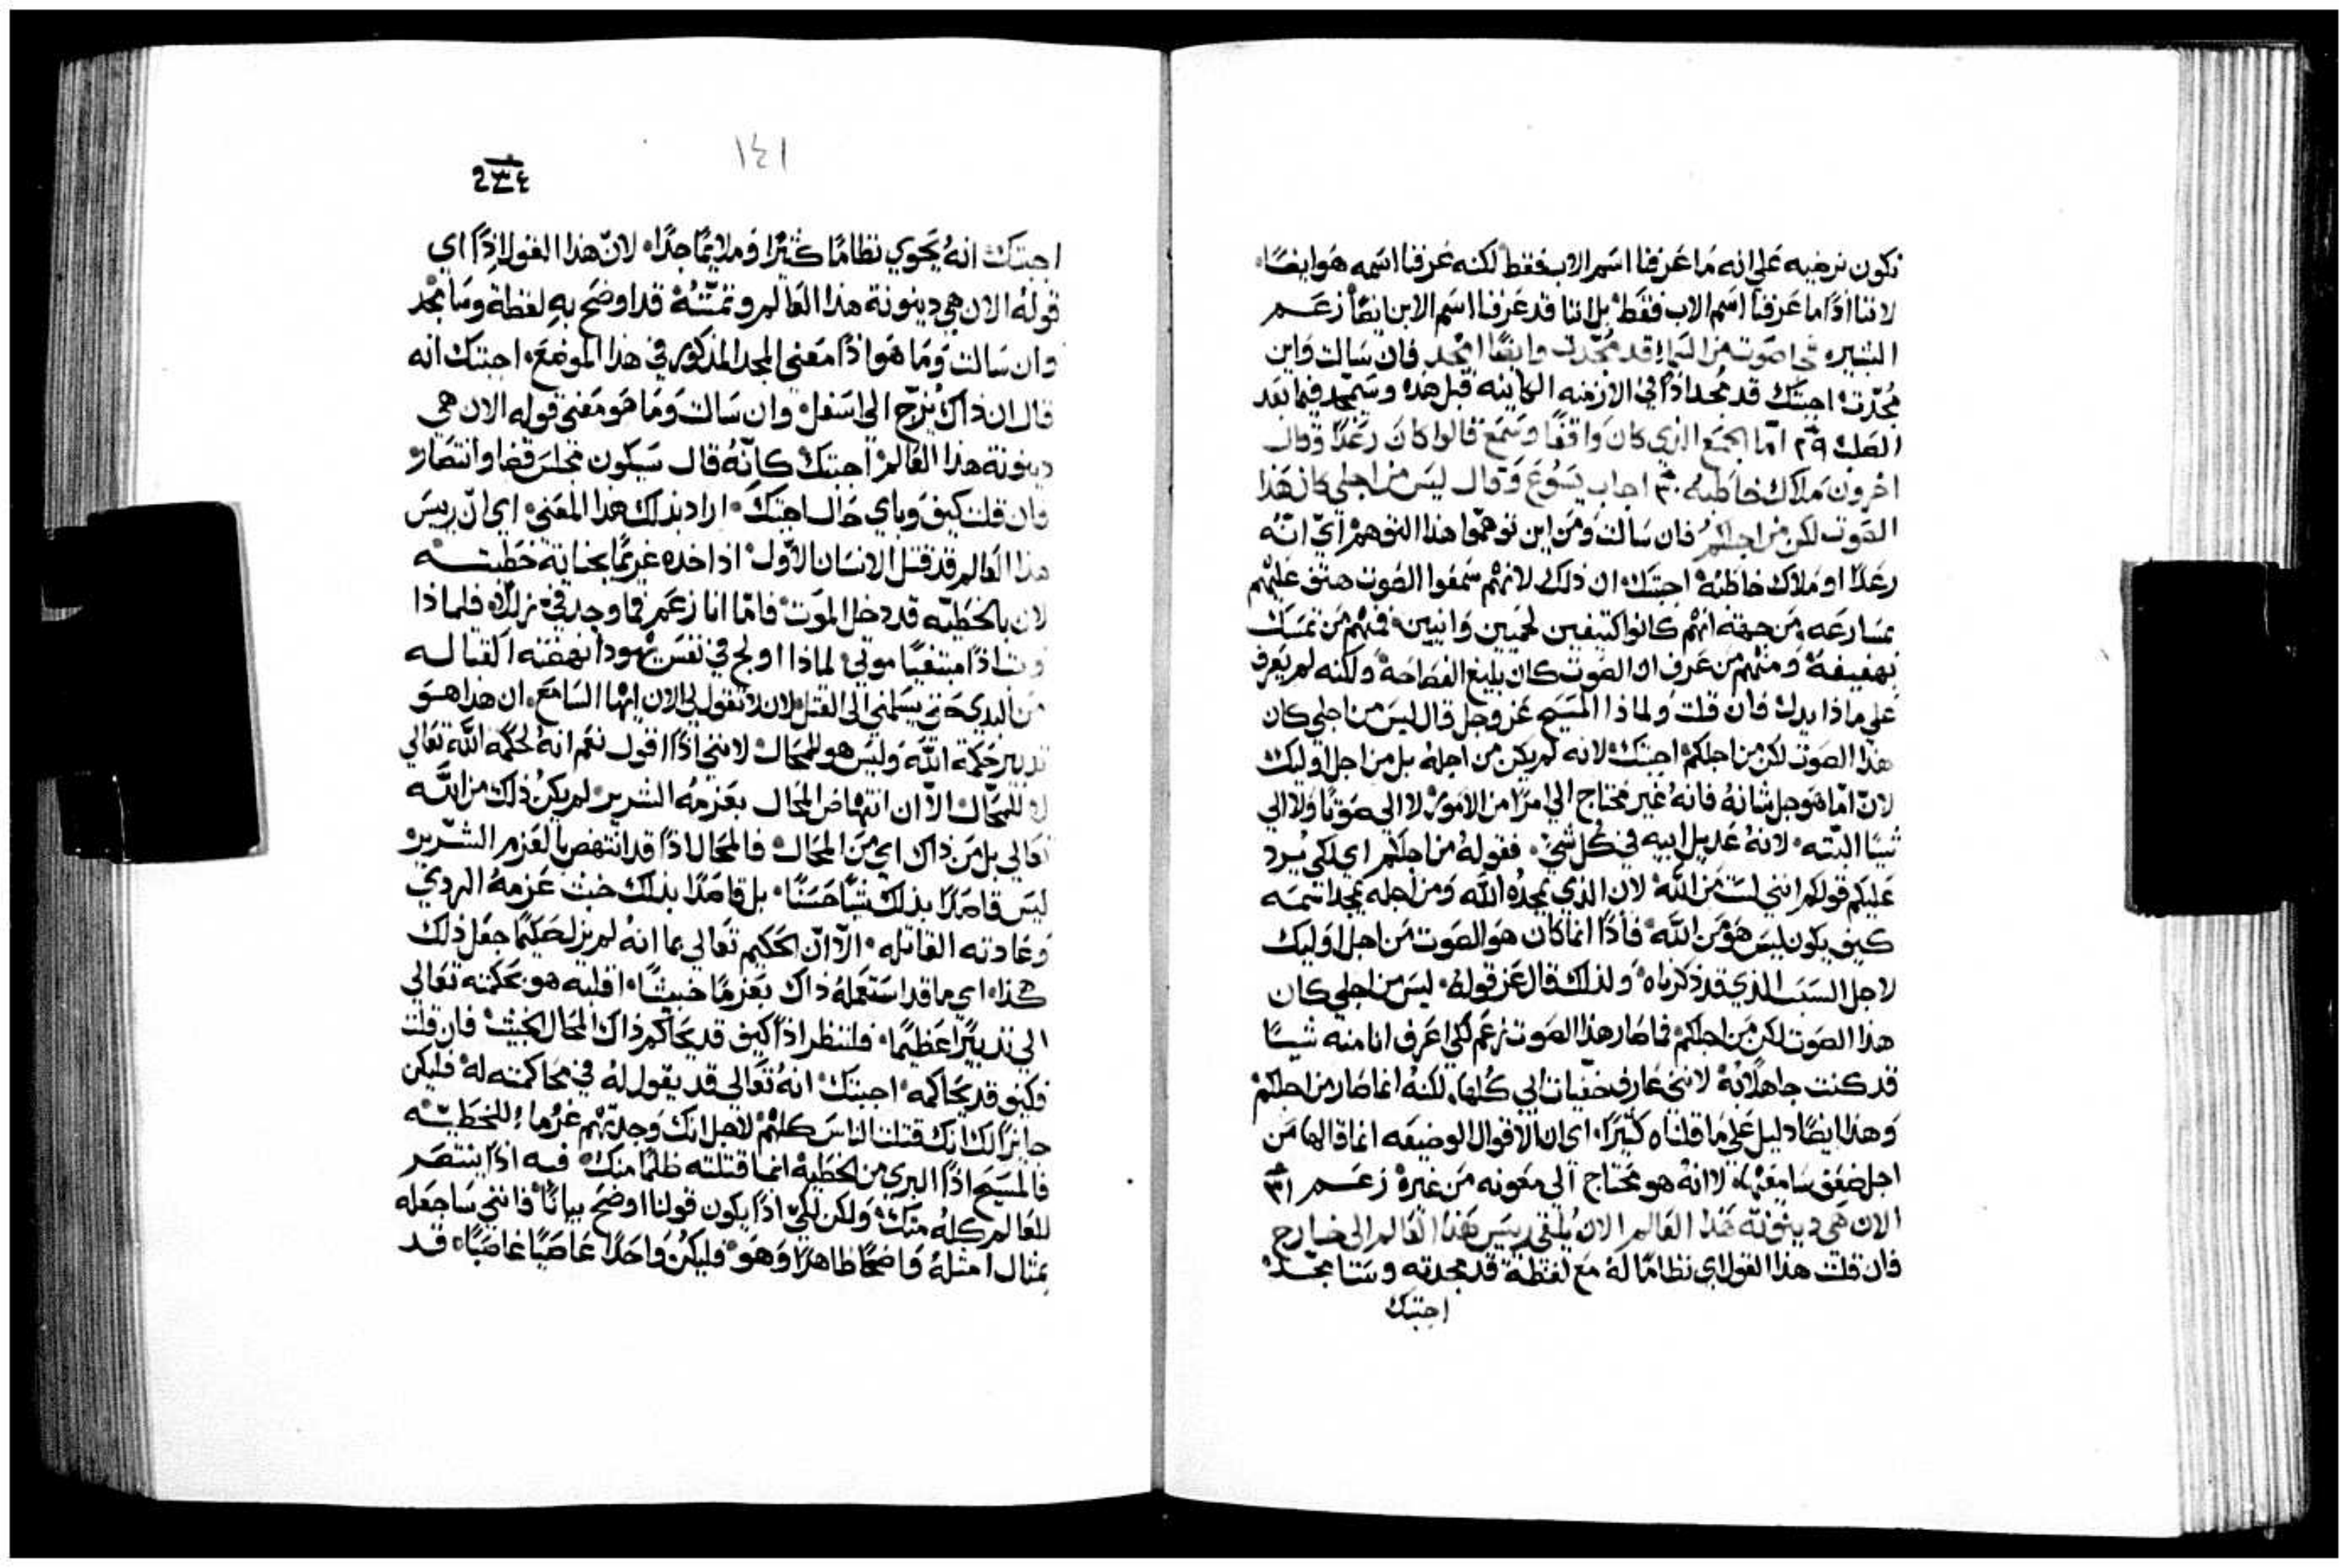 نكون نرضيه علي انه ما عرفنا اسم الاب فقط لكنه عرفنا اسمه هو ايضًا
لاننا اذًا ما عرفنا اسم الاب فقط بل اننا قد عرفنا اسم الابن ايضًا زعم
البشير فجا صوت من السماء قد مجّدت وايضًا امجد فان سالت واين
مُجّدت اجبتك قد مُجد اذًا في الازمنه الكاينه قبل هذه وسيمجد فيما بعد
الصلب ٢٩ امّا الجمع الذي كان واقفًا وسَمع قالوا كان رَعَدًا وقال
اخرون ملاك خاطبه ٣٠ اجاب يسُوع وقال ليسَ من اجلي كان هَذا
الصوت لكن من اجلكم فان سالت ومن اين توهمّوا هذا التوهم اي انّه
رعدًا او ملاك خاطبه اجبتك ان ذلك لانهم سَمعوا الصوت هتف عليهم
بمسارعه من جهة انهم كانوا كثيفين لحميين وانيين فمنهم من تمسك
بهفيفه ومنهم من عرف ان الصوت كان بليغ الفصاحة ولكنه لم يعرف
علي ماذا يدل فان قلت ولماذا المسيح عز وجل قال ليسَ من اجلي كان
هذا الصوت لكن من اجلكم اجبتك لانه لم يكن من اجله بل من اجل اوليك
لانّ امّا هو جل شانه فانه غير محتاج الي امرًا من الامور لا الي صوتًا ولا الي
شيئًا البتّه لانه عديل ابيه في كل شي فقوله من اجلكم اي لكي يرد
عليكم قولكم انني لست من الله لان الذي يمجده الله ومن اجله يمجد اسمه
كيف يكون ليس هو من الله فاذًا انما كان هو الصوت من اجل اوليك
لاجل السبب الذي قد ذكرناه ولذلك قال عز قوله ليسَ من اجلي كان
هذا الصوت لكن من اجلكم فما صار هذا الصوت زعم لكي اعرف انا منه شيئًا
قد كنت جاهلًا به لانني عارف خفيات ابي كلها لكنه انما صار من اجلكم
وهذا ايضًا دليل علي ما قلناه كثيرًا اي ان الاقوال الوضيعه انما قالها من
اجل ضعف سامعيها لا انه هو محتاج الي معونه من غيره زعم ٣١
الان هي دينونة هذا العالم الان يُلقي ريس هذا العالم الي خارج
فان قلت هذا القول اي نظامًا له مع لفظة قد مجدته وسامجّد
اجبتك
١٤١
٢٣٤
اجبتك انه يحوي نظامًا كثيرًا وملايمًا جدًا لانّ هذا القول اذًا اي
قوله الان هي دينونة هذا العالم وتمتّنهُ قد اوضح به لفظة وسامجد
وان سالت وما هو اذًا معني المجد المذكور في هذا الموضع اجبتك انه
قال ان ذاك يُزج الي اسفل وان سالت وما هو معني قوله الان هي
دينونة هذا العالم اجبتك كانه قال سيكون مجلس قضا وانتصار
فان قلت كيف وباي حال اجبتك اراد بذلك هذا المعني اي انّ ريسَ
هذا العالم قد قتل الانسان الاول اذ اخده غريمًا بجناية خطيته
لان بالخطيّه قد دخل الموت فامّا انا زعم فما وجد فيّ زللاً فلماذا
وثب اذًا مبتغيًا موتي لماذا اولج في نفس يهودا نهضته القتاله
من البدي حتي يسلمني الي القتل لان لا تقول لي الان ايها السامع ان هذا هو
تدبير حكمة الله وليس هو للمحال لانني اذًا اقول نعم انه لحكمة الله تعالي
لا للمحال الا ان انتهاض المحال بعزمه الشرير لم يكن ذلك من الله
تعالي بل من ذاك اي من المحال فالمحال اذًا قد انتهض بالعزم الشرير
ليس قاصدًا بذلك شيًا حسنًا بل قاصدًا بذلك خبث عزمه الردي
وعادته القاتله الاّ انّ الحكيم تعالي بما انه لم يزل حكيمًا جعل ذلك
هكذا اي ما قد استعمله ذاك بعزمًا خبيثًا اقلبه هو بحكمته تعالي
الي تدبيرًا عظيمًا فلننظر اذًا كيف قد يحاكم ذاك المحال الخبيث فان قلت
فكيف قد يحاكمه اجبتك انه تعالي قد يقول له في محاكمته له فليكن
جايزًا لك انك قتلت الناس كلهم لاجل انك وجدتهم غرما للخطيّه
فالمسيح اذًا البري من الخطيه انما قتلته ظلمًا منك فبه اذًا ينتصر
للعالم كله منك ولكن لكي اذًا يكون قولنا اوضح بيانًا فانني ساجعله
بمثال امثله واضحًا ظاهرًا وهو فليكن واحدًا عاصيًا غاصبًا قد